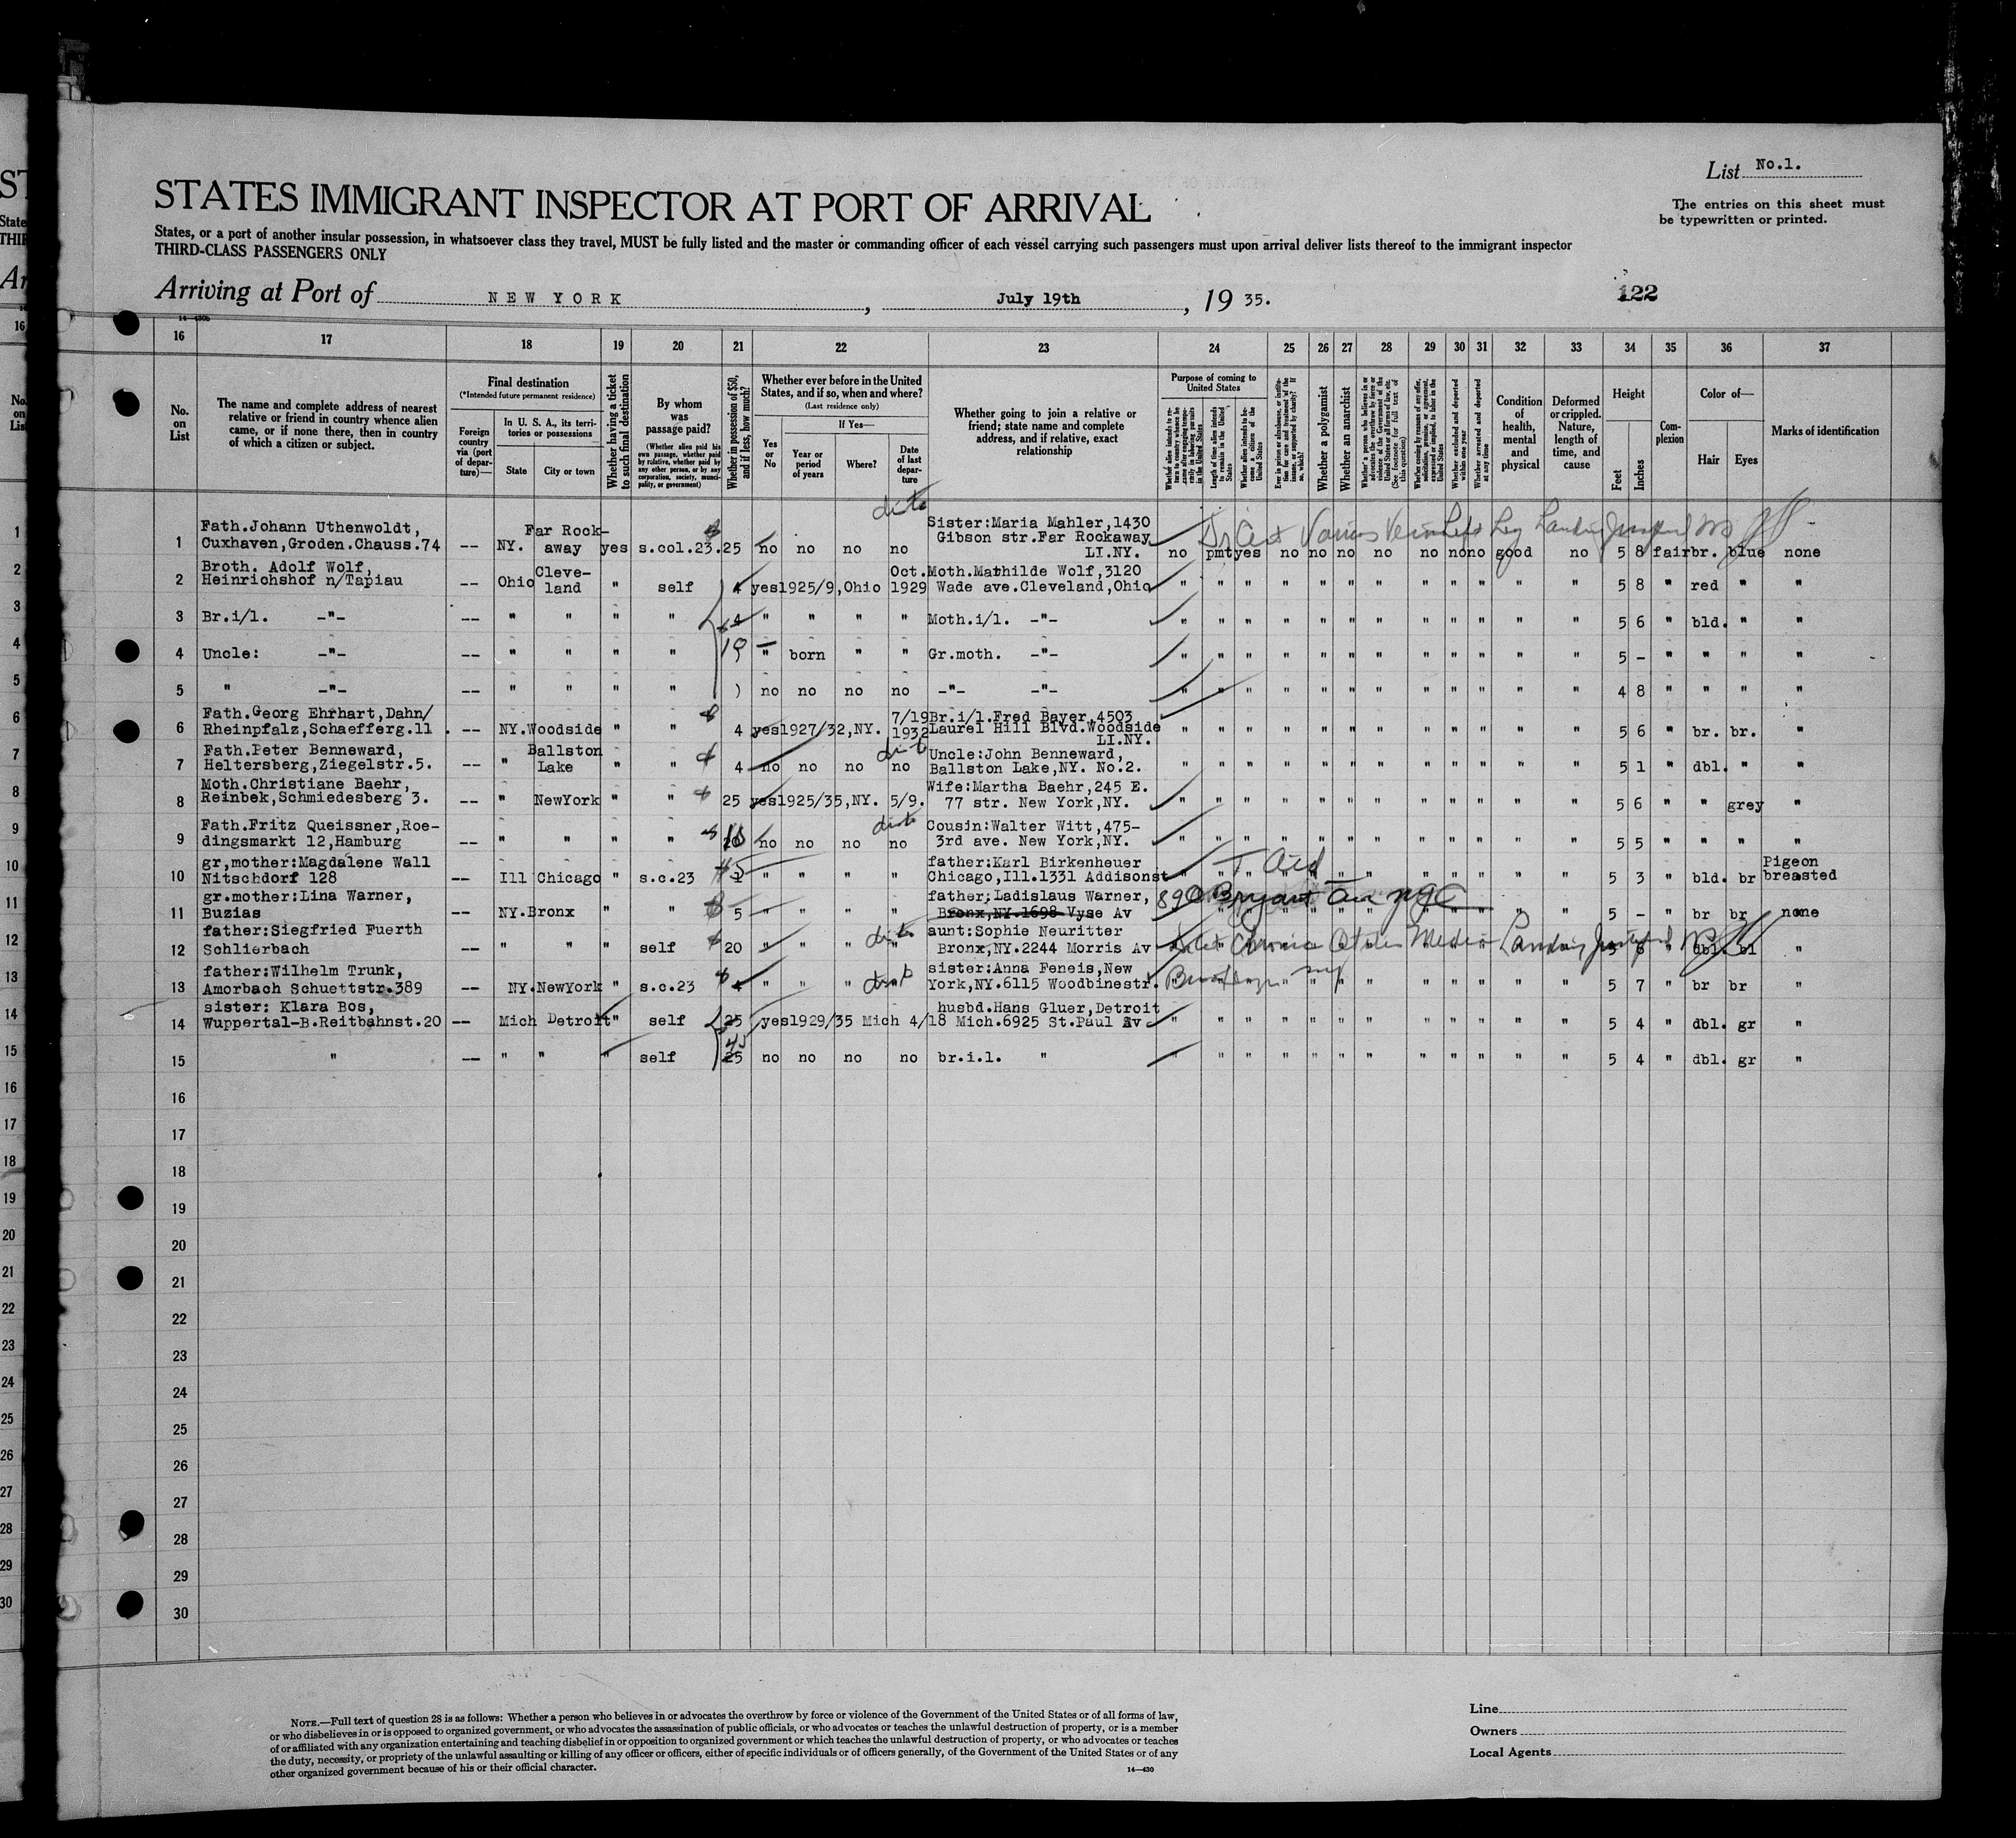 List No.1.
The entries on this sheet must
be typewritten or printed.
STATES IMMIGRANT INSPECTOR AT PORT OF ARRIVAL
States, or a port of another insular possession, in whatsoever class they travel, MUST be fully listed and the master or commanding officer of each vessel carrying such passengers must upon arrival deliver lists thereof to the immigrant inspector
THIRD-CLASS PASSENGERS ONLY
Arriving at Port of NEW YORK, July 19th, 19 35.
122
16 17 18 19 20 21 22 23 24 25 26 27 28 29 30 31 32 33 34 35 36 37
No. on List
The name and complete address of nearest
relative or friend in country whence alien
came, or if none there, then in country
of which a citizen or subject.
Final destination
(*Intended future permanent residence)
Foreign country via (port of departure)—
In U. S. A., its territories or possessions
State
City or town
Whether having a ticket to such final destination
By whom was passage paid?
(Whether alien paid his own passage, whether paid by relative, whether paid by any other person, or by any corporation, society, municipality, or government)
Whether in possession of $50, and if less, how much?
Whether ever before in the United
States, and if so, when and where?
(Last residence only)
Yes or No
If Yes—
Year or period of years
Where?
Date of last departure
Whether going to join a relative or
friend; state name and complete
address, and if relative, exact
relationship
Purpose of coming to United States
Length of time alien intends to remain in the United States
Whether alien intends to become a citizen of the United States
Whether a polygamist
Whether an anarchist
Whether excluded and deported within one year
Whether arrested and deported at any time
Condition of health, mental and physical
Deformed or crippled. Nature, length of time, and cause
Height
Feet
Inches
Complexion
Color of—
Hair
Eyes
Marks of identification
1 Fath.Johann Uthenwoldt, Cuxhaven,Groden.Chauss.74 -- NY. Far Rockaway yes s.col.23. 25 no no no no Sister:Maria Mahler,1430 Gibson str.Far Rockaway LI.NY. no pmt yes no no no no no no no good no 5 8 fair br. blue none
2 Broth. Adolf Wolf, Heinrichshof n/Tapiau -- Ohio Cleve-land " self 4 yes 1925/9,Ohio Oct. 1929 Moth.Mathilde Wolf,3120 Wade ave.Cleveland,Ohio " " " " " " " " " " " " 5 8 " red " "
3 Br.i/l. -"- -- " " " " 4 " " " " Moth.i/l. -"- " " " " " " " " " " " " 5 6 " bld. " "
4 Uncle: -"- -- " " " " " born " " Gr.moth. -"- " " " " " " " " " " " " 5 - " " " "
5 " -"- -- " " " " no no no no -"- -"- " " " " " " " " " " " " 4 8 " " " "
6 Fath.Georg Ehrhart,Dahn/ Rheinpfalz,Schaefferg.11. -- NY. Woodside " " 4 yes 1927/32,NY. 7/19 1932 Br.i/l.Fred Bayer,4503 Laurel Hill Blvd.Woodside LI.NY. " " " " " " " " " " " " 5 6 " br. br. "
7 Fath.Peter Benneward, Heltersberg,Ziegelstr.5. -- " Ballston Lake " " 4 no no no no Uncle:John Benneward, Ballston Lake,NY. No.2. " " " " " " " " " " " " 5 1 " dbl. " "
8 Moth.Christiane Baehr, Reinbek,Schmiedesberg 3. -- " NewYork " " 25 yes 1925/35,NY. 5/9. Wife:Martha Baehr,245 E. 77 str. New York,NY. " " " " " " " " " " " " 5 6 " " grey "
9 Fath.Fritz Queissner,Roe-dingsmarkt 12,Hamburg -- " " " " no no no no Cousin:Walter Witt,475- 3rd ave. New York,NY. " " " " " " " " " " " " 5 5 " " " "
10 gr,mother:Magdalene Wall Nitschdorf 128 -- Ill Chicago " s.c.23 " " " " father:Karl Birkenheuer Chicago,Ill.1331 Addisonst " " " " " " " " " " 5 3 " bld. br Pigeon breasted
11 gr.mother:Lina Warner, Buzias -- NY. Bronx " " 5 " " " " father;Ladislaus Warner, Bronx,NY.1698 Vyse Av 890 Bryant Av NYC 5 - " br br none
12 father:Siegfried Fuerth Schlierbach -- " " " self 20 " " " " aunt:Sophie Neuritter Bronx,NY.2244 Morris Av Chronic Otitis Media 5 8 " dbl. bl "
13 father:Wilhelm Trunk, Amorbach Schuettstr.389 NY. NewYork " s.c.23 4 " " " " sister:Anna Feneis,New York,NY.6115 Woodbinestr. Brooklyn NY 5 7 " br br "
14 sister: Klara Bos, Wuppertal-B.Reitbahnst.20 -- Mich Detroit " self 25 yes 1929/35 Mich 4/18 husbd.Hans Gluer,Detroit Mich.6925 St.Paul Av " " " " " " " " " " " " 5 4 " dbl. gr "
15 " -- " " " self 25 no no no no br.i.l. " " " " " " " " " " " " " 5 4 " dbl. gr "
16
17
18
19
20
21
22
23
24
25
26
27
28
29
30
NOTE.—Full text of question 28 is as follows: Whether a person who believes in or advocates the overthrow by force or violence of the Government of the United States or of all forms of law,
or who disbelieves in or is opposed to organized government, or who advocates the assassination of public officials, or who advocates or teaches the unlawful destruction of property, or is a member
of or affiliated with any organization entertaining and teaching disbelief in or opposition to organized government or which teaches the unlawful destruction of property, or who advocates or teaches
the duty, necessity, or propriety of the unlawful assaulting or killing of any officer or officers, either of specific individuals or of officers generally, of the Government of the United States or of any
other organized government because of his or their official character.
14—430
Line
Owners
Local Agents